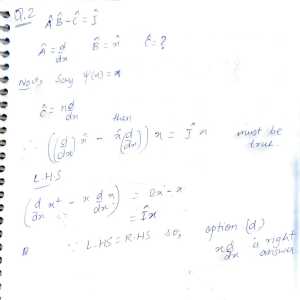 Q.2 ÂB̂ - Ĉ = Î
Â = d/dx B̂ = x̂ Ĉ = ?
Now, Say ψ(x) = x
Ĉ = x d/dx
then
∴ ((d/dx) x̂ - x̂ (d/dx)) x = Î x must be true.
L.H.S
(d/dx x² - x d/dx x) = 2x - x
= Î x
∵ L.H.S = R.H.S so, option (d)
x d/dx is right answer